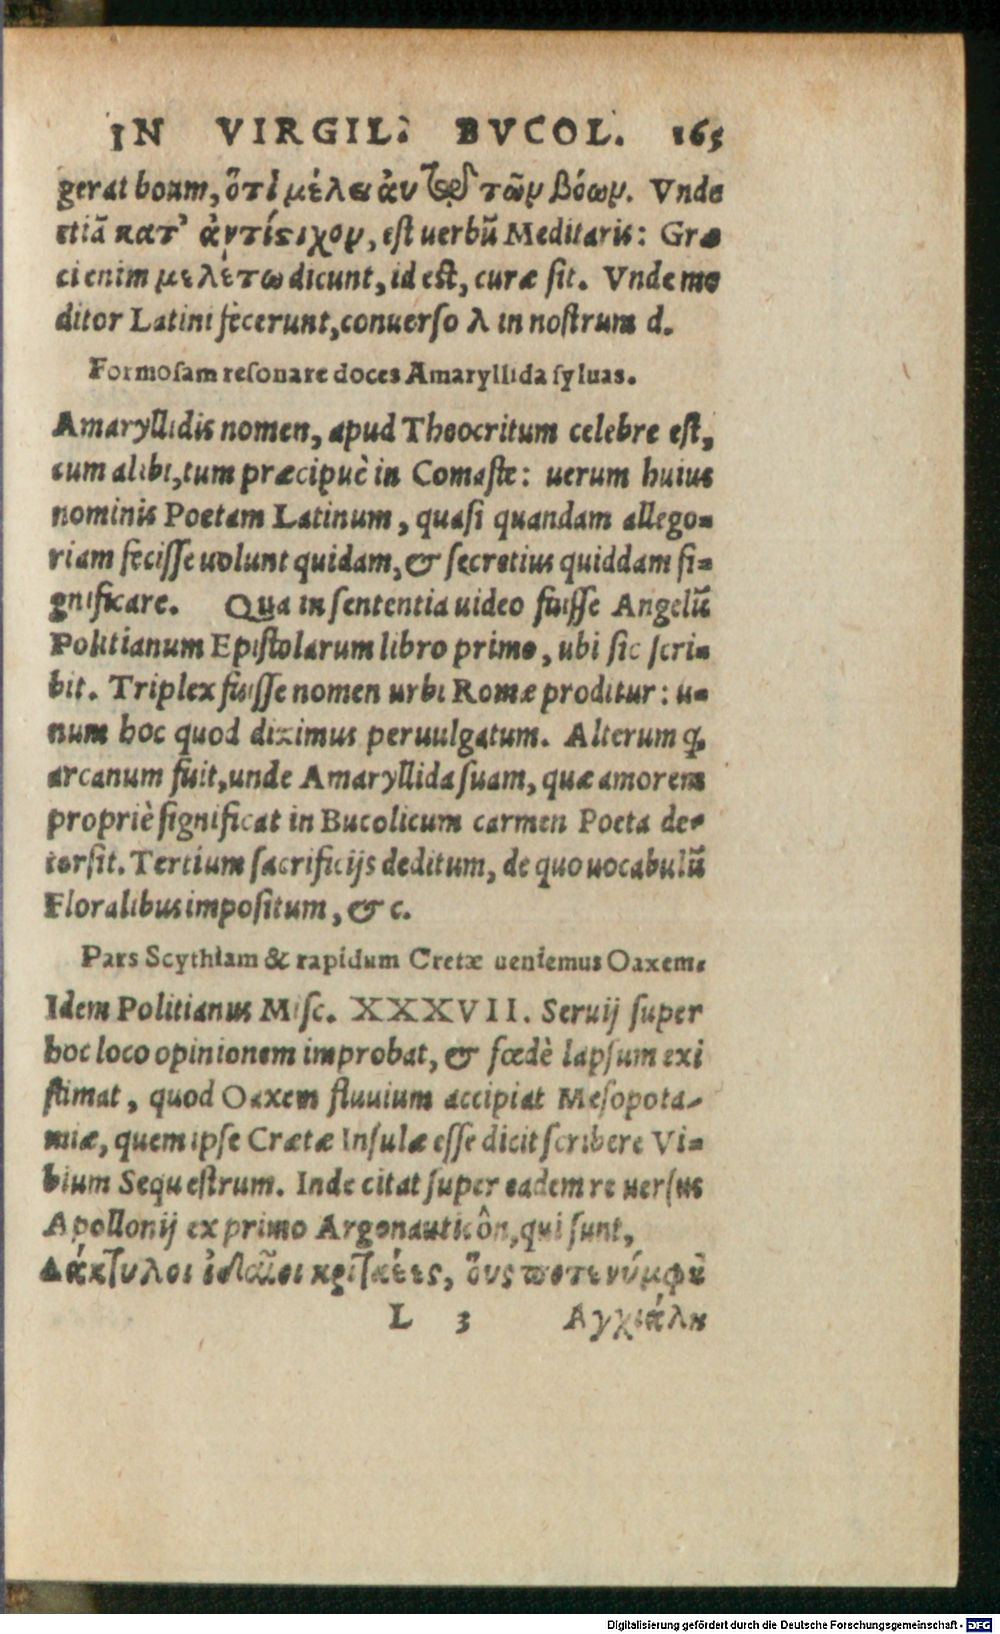 IN VIRGIL. BVCOL. 165
gerat boum, ὅτι μέλει ἀυτῷ τῶν βόων. Vnde
etiã κατ' ἀντίςιχον, est uerbũ Meditaris: Græ
ci enim μελέτω dicunt, id est, curæ sit. Vnde me
ditor Latini fecerunt, conuerso λ in nostrum d.
Formosam resonare doces Amaryllida syluas.
Amaryllidis nomen, apud Theocritum celebre est,
cum alibi, tum præcipuè in Comaste: uerum huius
nominis Poetam Latinum, quasi quandam allego=
riam fecisse uolunt quidam, & secretius quiddam si=
gnificare. Qua in sententia uideo fuisse Angelũ
Politianum Epistolarum libro primo, ubi sic scri=
bit. Triplex fuisse nomen urbi Romæ proditur: u=
num hoc quod diximus peruulgatum. Alterum q́;
arcanum fuit, unde Amaryllida suam, quæ amorem
propriè significat in Bucolicum carmen Poeta de=
torsit. Tertium sacrificijs deditum, de quo uocabulũ
Floralibus impositum, & c.
Pars Scythiam & rapidum Cretæ ueniemus Oaxem.
Idem Politianus Misc. XXXVII. Seruij super
hoc loco opinionem improbat, & fœdè lapsum exi
stimat, quod Oaxem fluuium accipiat Mesopota=
miæ, quem ipse Cretæ Insulæ esse dicit scribere Vi=
bium Sequestrum. Inde citat super eadem re uersus
Apollonij ex primo Argonauticôn, qui sunt,
Δάκτυλοι ἰδαῖοι κριταέες, ὅυς ποτε νύμφη
L 3 Αγχιάλη
Digitalisierung gefördert durch die Deutsche Forschungsgemeinschaft - DFG